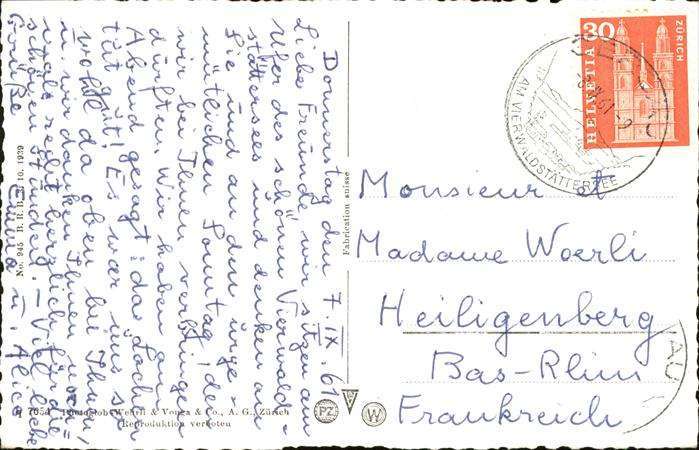 Donnerstag den 7. IX. 61
Liebe Freunde, wir sitzen am
Ufer des schönen Vierwald-
stättersees und denken an
Sie und an den urge-
mütlichen Sonntag, den
wir bei Ihnen verbringen
durften. Wir haben am
Abend gesagt: das Lachen
tut gut! Es war uns so
wohl da oben bei Ihnen,
u. wir danken Ihnen noch-
mals recht herzlich für die
schönen Stunden! – Viele liebe
Grüße Emma u. Alice
Monsieur et
Madame Woerli
Heiligenberg
Bas-Rhin
Frankreich
30
HELVETIA
ZÜRICH
AM VIERWALDSTÄTTERSEE
Fabrication suisse
No. 945 B. R. B. 3. 10. 1939
7034 Photoglob-Wehrli & Vouga & Co., A. G., Zürich
Reproduktion verboten
PZ
W